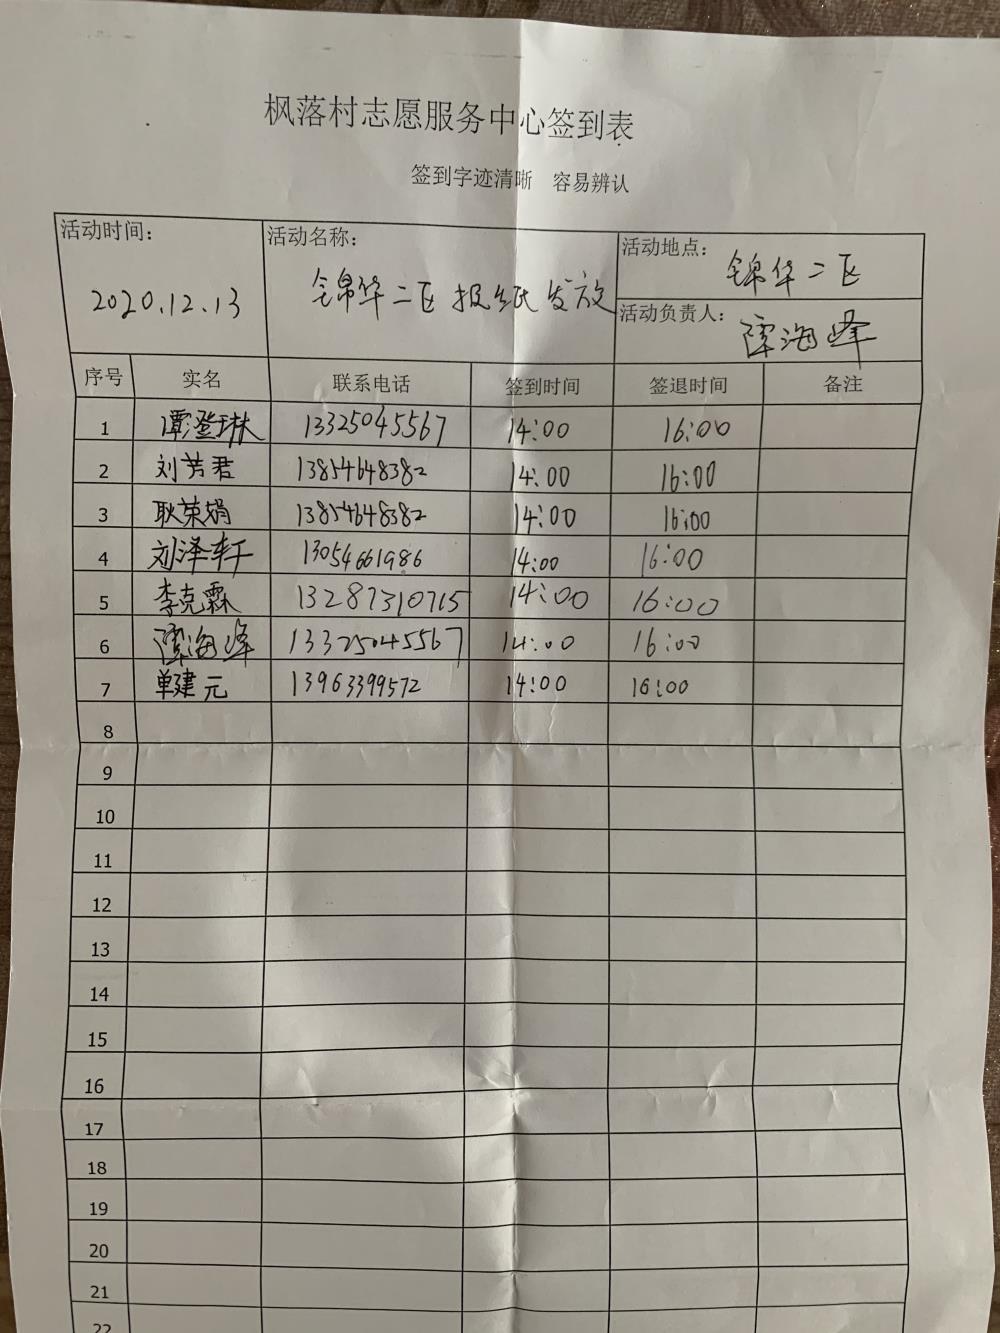 枫落村志愿服务中心签到表
签到字迹清晰 容易辨认
活动时间: 2020.12.13
活动名称: 锦华二区报纸发放
活动地点: 锦华二区
活动负责人: 谭海峰
序号 实名 联系电话 签到时间 签退时间 备注
1 谭澄琳 13325045567 14:00 16:00
2 刘芳君 13854648382 14:00 16:00
3 耿荣娟 13854648382 14:00 16:00
4 刘泽轩 13054661986 14:00 16:00
5 李克霖 13287310715 14:00 16:00
6 谭海峰 13325045567 14:00 16:00
7 单建元 13963399572 14:00 16:00
8
9
10
11
12
13
14
15
16
17
18
19
20
21
22